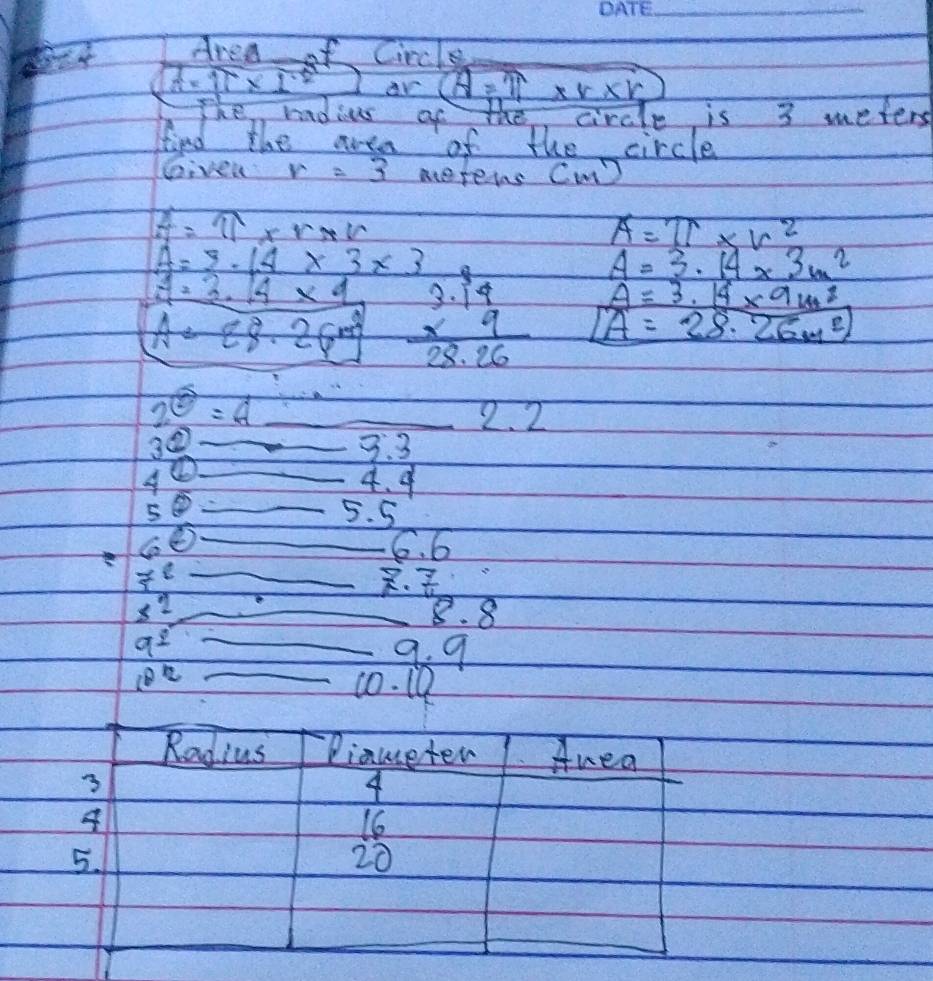 DATE
Area of Circle
A = π × r² or A = π × r × r
The radius of the circle is 3 meters
find the area of the circle
Given r = 3 meters (m)
A = π × r × r A = π × r²
A = 3.14 × 3 × 3 A = 3.14 × 3m²
A = 3.14 × 9 3.14 A = 3.14 × 9m²
A = 28.26m² × 9 A = 28.26m²
28.26
2² = 4 2.2
3² 3.3
4² 4.4
5² 5.5
6² 6.6
7² 7.7
8² 8.8
9² 9.9
10² 10.10
Radius Diameter Area
3 4
4 16
5. 20